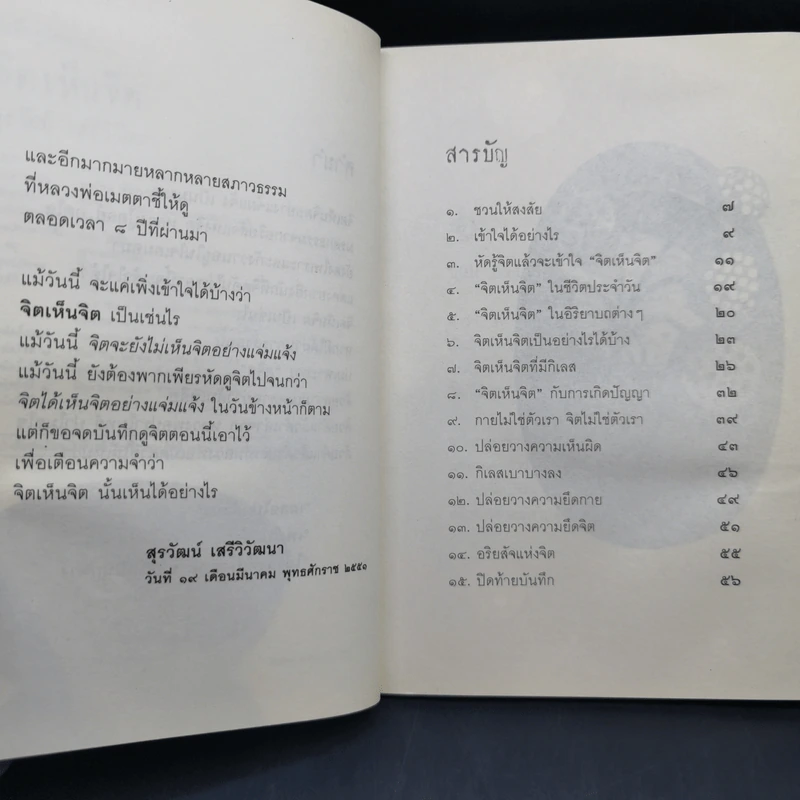 และอีกมากมายหลากหลายสภาวธรรม
ที่หลวงพ่อเมตตาชี้ให้ดู
ตลอดเวลา ๘ ปีที่ผ่านมา
แม้วันนี้ จะแค่เพิ่งเข้าใจได้บ้างว่า
จิตเห็นจิต เป็นเช่นไร
แม้วันนี้ จิตจะยังไม่เห็นจิตอย่างแจ่มแจ้ง
แม้วันนี้ ยังต้องพากเพียรหัดดูจิตไปจนกว่า
จิตได้เห็นจิตอย่างแจ่มแจ้ง ในวันข้างหน้าก็ตาม
แต่ก็ขอจดบันทึกดูจิตตอนนี้เอาไว้
เพื่อเตือนความจำว่า
จิตเห็นจิต นั้นเห็นได้อย่างไร
สุรวัฒน์ เสรีวิวัฒนา
วันที่ ๑๙ เดือนมีนาคม พุทธศักราช ๒๕๕๑
สารบัญ
๑. ชวนให้สงสัย ๗
๒. เข้าใจได้อย่างไร ๙
๓. หัดรู้จิตแล้วจะเข้าใจ "จิตเห็นจิต" ๑๑
๔. "จิตเห็นจิต" ในชีวิตประจำวัน ๑๙
๕. "จิตเห็นจิต" ในอิริยาบถต่างๆ ๒๐
๖. จิตเห็นจิตเป็นอย่างไรได้บ้าง ๒๓
๗. จิตเห็นจิตที่มีกิเลส ๒๖
๘. "จิตเห็นจิต" กับการเกิดปัญญา ๓๒
๙. กายไม่ใช่ตัวเรา จิตไม่ใช่ตัวเรา ๓๙
๑๐. ปล่อยวางความเห็นผิด ๔๓
๑๑. กิเลสเบาบางลง ๔๖
๑๒. ปล่อยวางความยึดกาย ๔๙
๑๓. ปล่อยวางความยึดจิต ๕๑
๑๔. อริยสัจแห่งจิต ๕๕
๑๕. ปิดท้ายบันทึก ๕๖